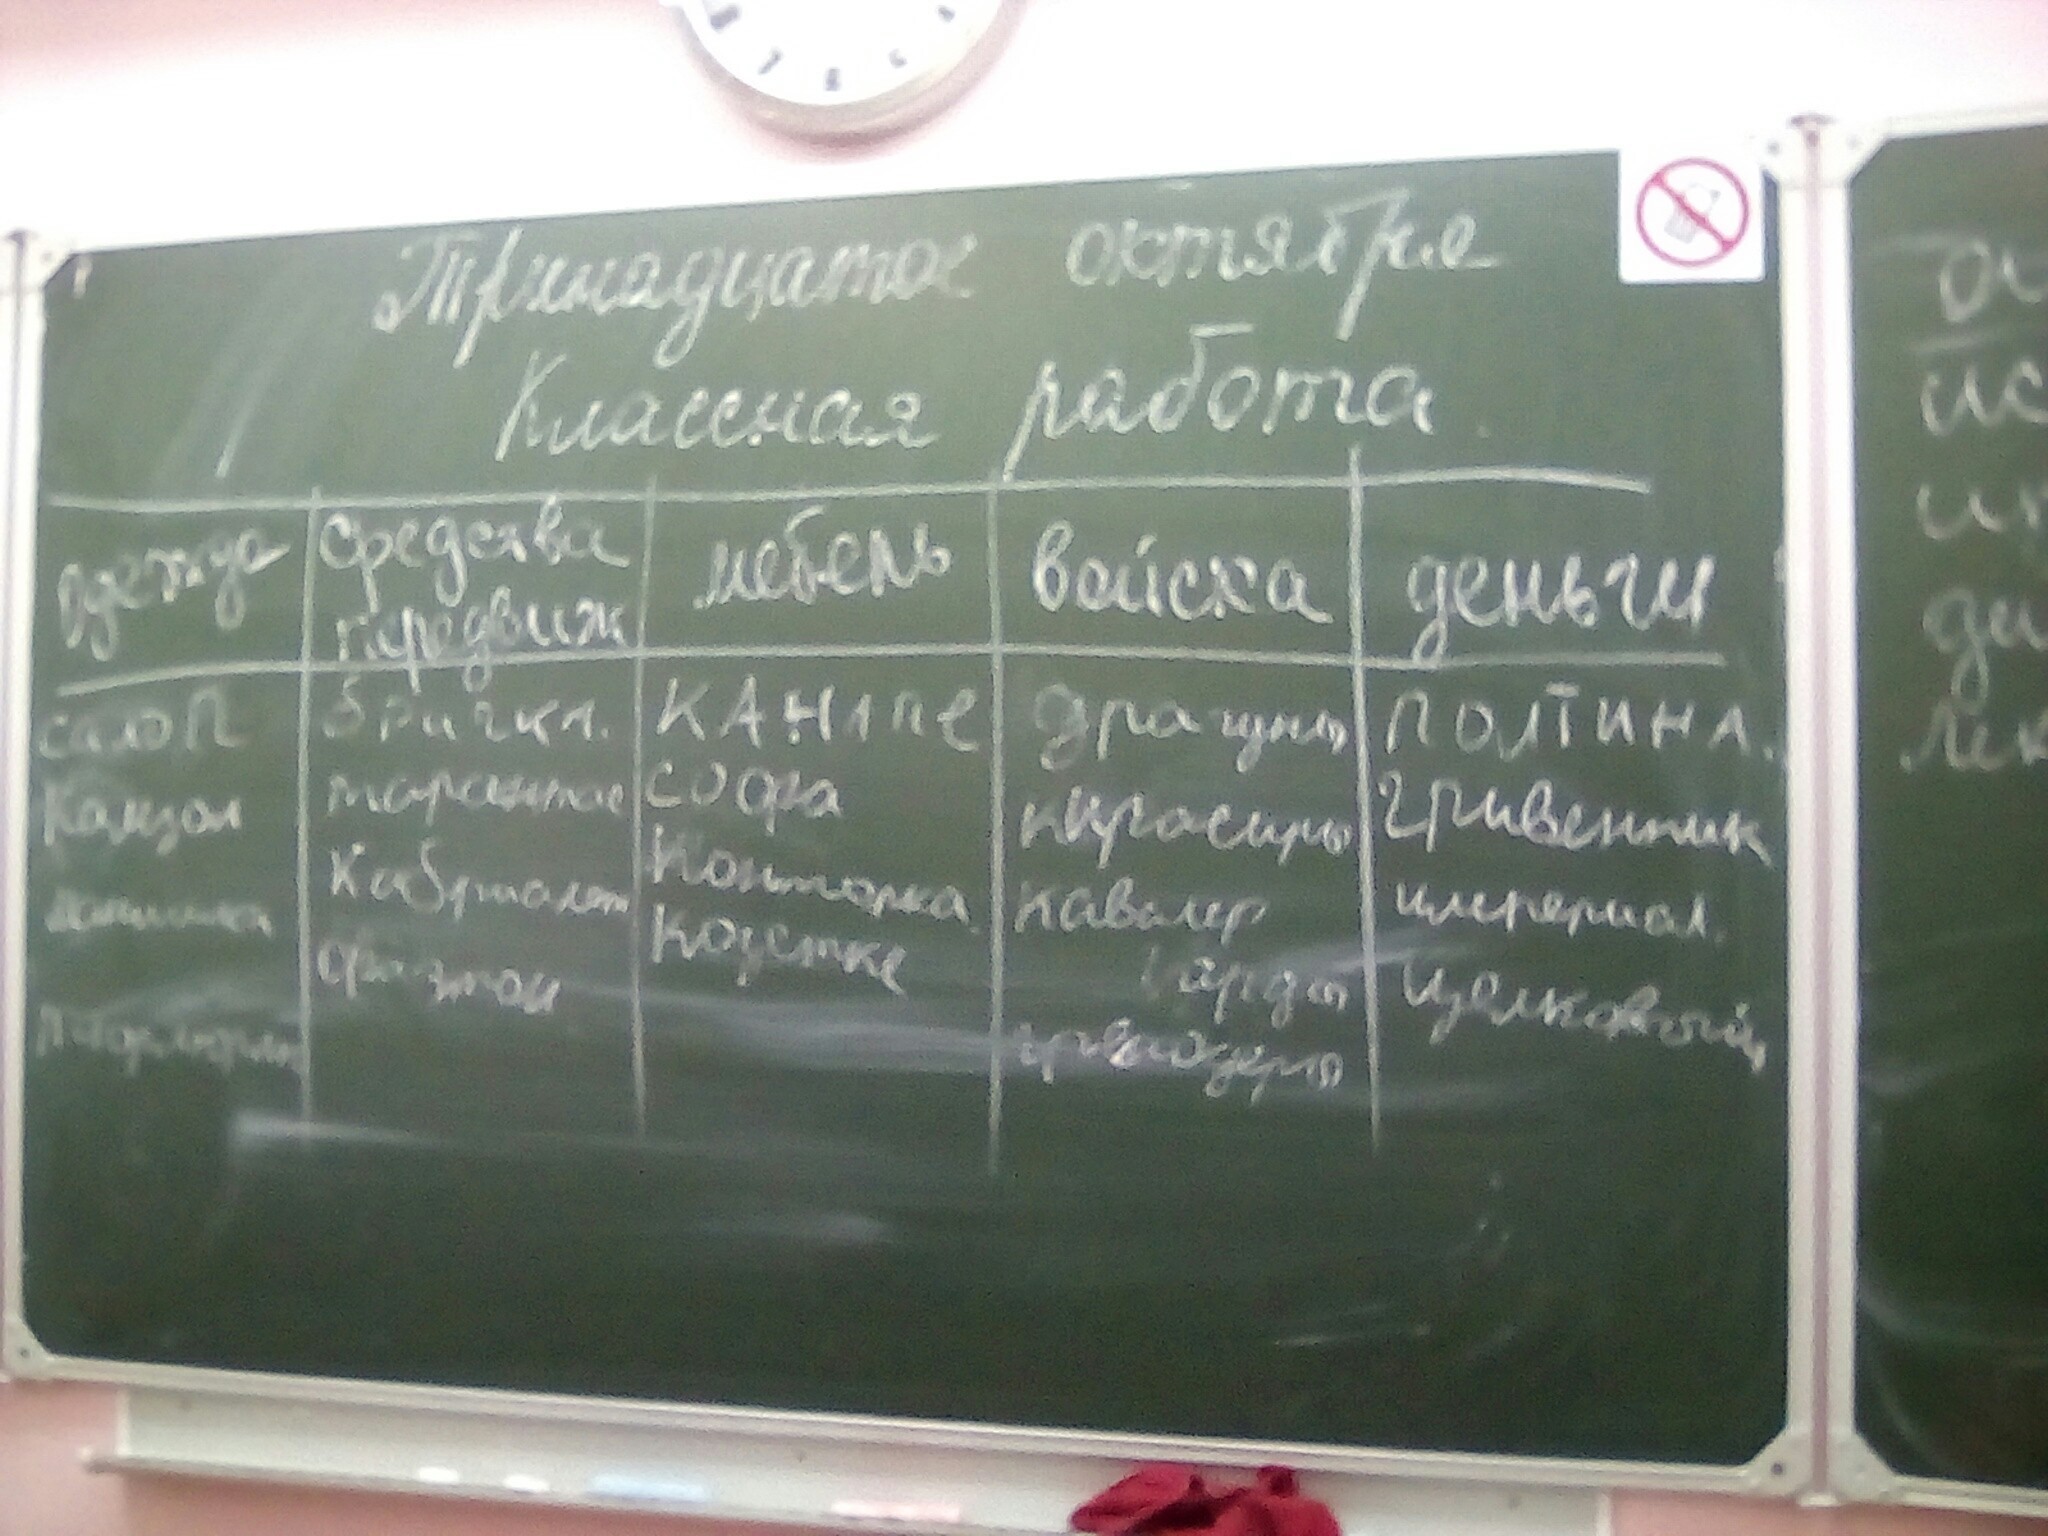 Тринадцатое октября
Классная работа
одежда средства передвиж мебель войска деньги
салоп бричка. КАНАПЕ драгуны ПОЛТИНА.
Камзол тарантас софа кирасиры гривенник
манишка Кабриолет Конторка кавалер империал.
фаэтон Козетке гарды целковый
гренадеры